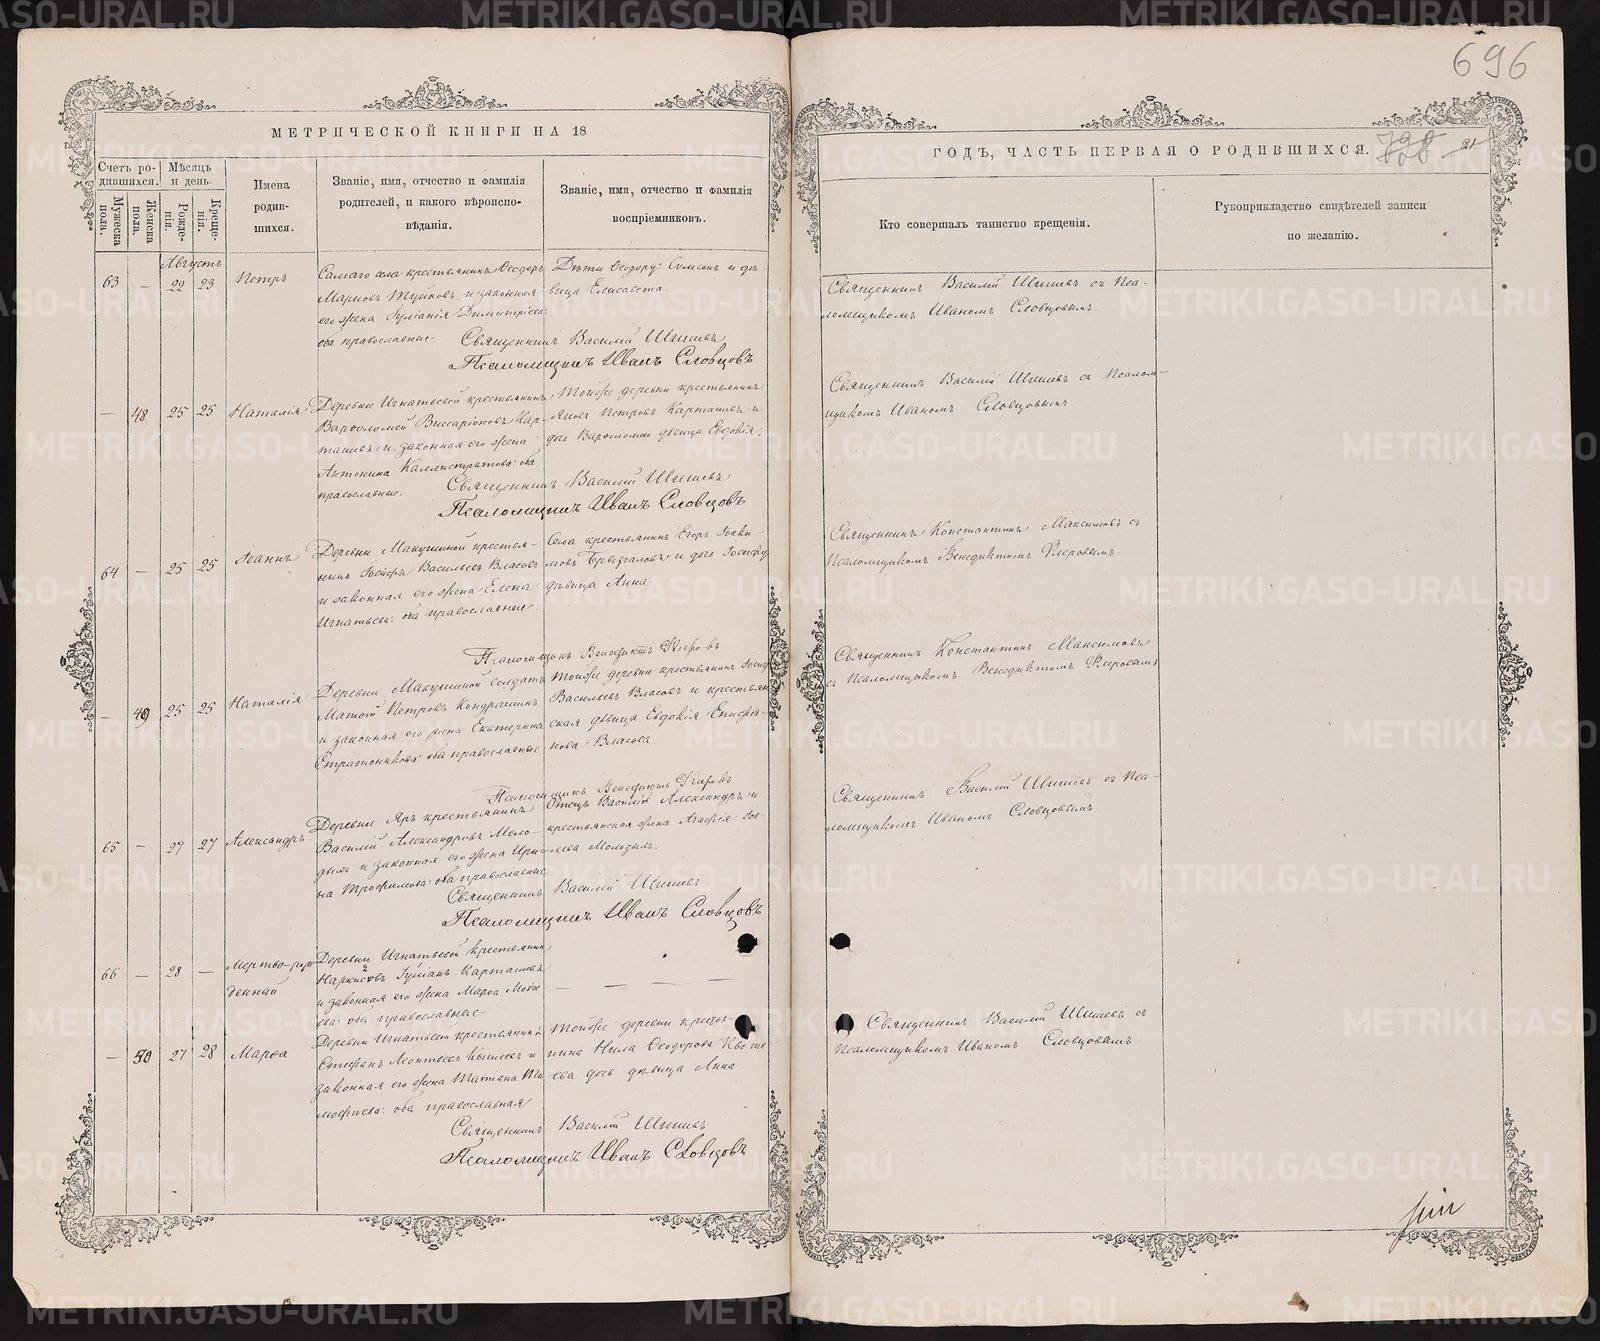 696
МЕТРИЧЕСКОЙ КНИГИ НА 18
ГОДЪ, ЧАСТЬ ПЕРВАЯ О РОДИВШИХСЯ.
Счетъ ро-
дившихся.
Мѣсяцъ
и день.
Мужеска
пола.
Женска
пола.
Рожде-
нія.
Креще-
нія.
Имена
родив-
шихся.
Званіе, имя, отчество и фамилія
родителей, и какого вѣроиспо-
вѣданія.
Званіе, имя, отчество и фамилія
воспріемниковъ.
Кто совершалъ таинство крещенія.
Рукоприкладство свидѣтелей записи
по желанію.
Августъ
63 — 22 23 Петръ
Самаго села крестьянинъ Ѳеодоръ
и законная
его жена Іуліанія Димитріева:
оба православные.
Дѣти Ѳеодору: Симеонъ и дѣ-
вица Елисавета.
Священникъ Василій Шишевъ
Псаломщикъ Иванъ Словцовъ
Священникъ Василій Шишевъ съ Пса-
ломщикомъ Иваномъ Словцовымъ.
— 48 25 25 Наталія
Деревни Игнатьевой крестьянинъ
Варѳоломей Виссаріоновъ Кар-
ташевъ и законная его жена
Антонина Каллистратова: оба
православные.
Тойже деревни крестьянинъ
Яковъ Петровъ Карташевъ и
дочь Варѳоломея дѣвица Евдокія.
Священникъ Василій Шишевъ
Псаломщикъ Иванъ Словцовъ
Священникъ Василій Шишевъ съ Псалом-
щикомъ Иваномъ Словцовымъ.
64 — 25 25 Іоаннъ
Деревни Макушиной крестья-
нинъ Іосифъ Васильевъ Власовъ
и законная его жена Елена
Игнатьева: оба православные.
Села крестьянинъ Егоръ Іоаки-
мовъ и дочь Іосифу
дѣвица Анна.
Псаломщикъ Венедиктъ Флеровъ
Священникъ Константинъ Максимовъ съ
Псаломщикомъ Венедиктомъ Флеровымъ.
— 49 25 25 Наталія
Деревни Макушиной солдатъ
Матѳій Петровъ Кондрашинъ
и законная его жена Екатерина
Стратоникова: оба православные
Тойже деревни крестьянинъ Іосифъ
Васильевъ Власовъ и крестьян-
ская дѣвица Евдокія Епифа-
нова Власова.
Псаломщикъ Венедиктъ Флеровъ
Священникъ Константинъ Максимовъ
съ Псаломщикомъ Венедиктомъ Флеровымъ
65 — 27 27 Александръ
Деревни Яръ крестьянинъ
Василій Александровъ Моло-
дыхъ и законная его жена Ири-
на Трофимова: оба православные
Отецъ Василія Александръ и
крестьянская жена Агафія
Молодыхъ.
Священникъ Василій Шишевъ
Псаломщикъ Иванъ Словцовъ
Священникъ Василій Шишевъ съ Пса-
ломщикомъ Иваномъ Словцовымъ.
66 — 28 — Мертво-рож-
денный
Деревни Игнатьевой крестьянинъ
Наркисовъ Іуліанъ Карташевъ
и законная его жена Марѳа Моѵсе-
ева: оба православные.
— — — —
— 50 27 28 Марѳа
Деревни Игнатьевой крестьянинъ
Стефанъ Леонтьевъ и
законная его жена Татіана Ти-
моѳеева: оба православная
Тойже деревни крестья-
нина Нила Ѳеодорова
дочь дѣвица Анна.
Священникъ Василій Шишевъ
Псаломщикъ Иванъ Словцовъ
Священникъ Василій Шишевъ съ
Псаломщикомъ Иваномъ Словцовымъ.
METRIKI.GASO-URAL.RU